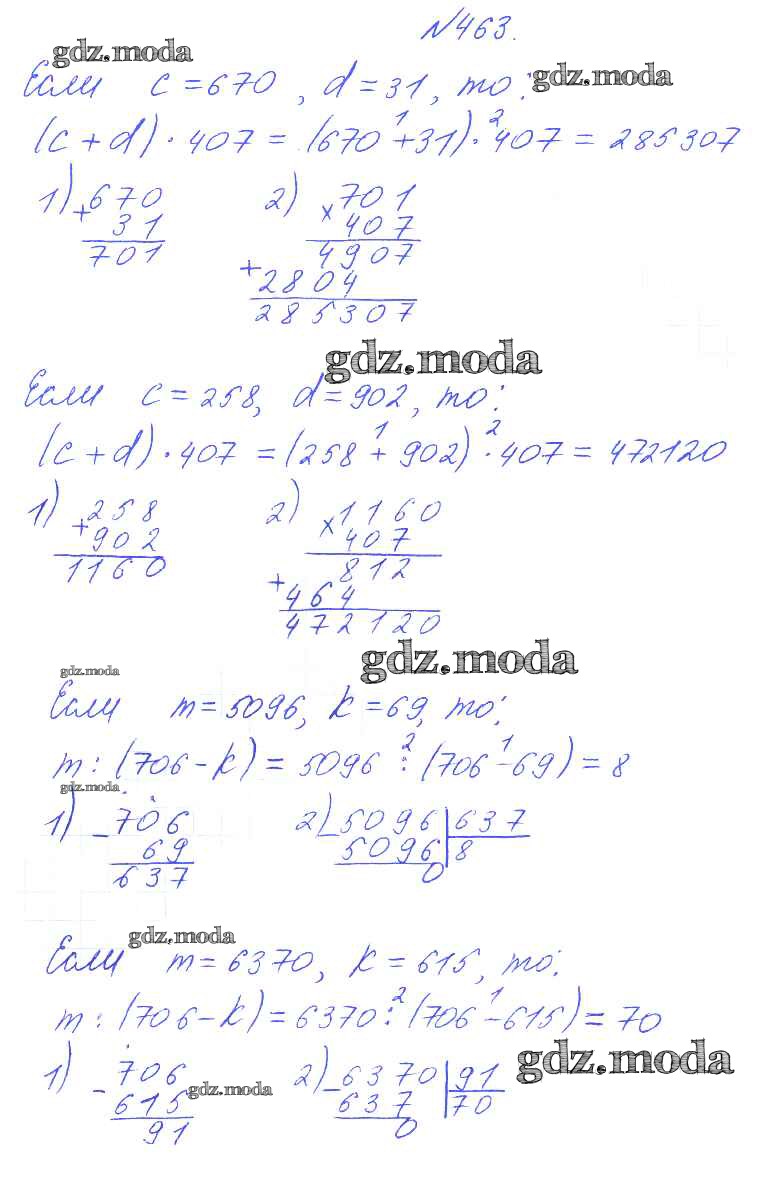 №463.
gdz.moda
Если c = 670, d = 31, то: gdz.moda
(c + d) · 407 = (670 +¹ 31) ·² 407 = 285307
1) 670 2) 701
+ 31 × 407
701 4907
+ 2804
285307
gdz.moda
Если c = 258, d = 902, то:
(c + d) · 407 = (258 +¹ 902) ·² 407 = 472120
1) 258 2) 1160
+ 902 × 407
1160 812
+ 464
472120
gdz.moda
gdz.moda
Если m = 5096, k = 69, то:
m : (706 - k) = 5096 :² (706 -¹ 69) = 8
gdz.moda
1) - 706 2) - 5096 | 637
69 5096 | 8
637 0
gdz.moda
Если m = 6370, k = 615, то:
m : (706 - k) = 6370 :² (706 -¹ 615) = 70
gdz.moda
1) - 706 2) - 6370 | 91
615 gdz.moda 637 | 70
91 0